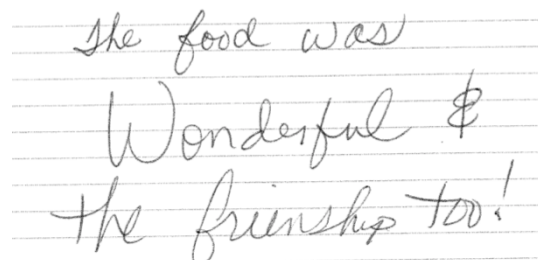 The food was
Wonderful &
the frienship too!